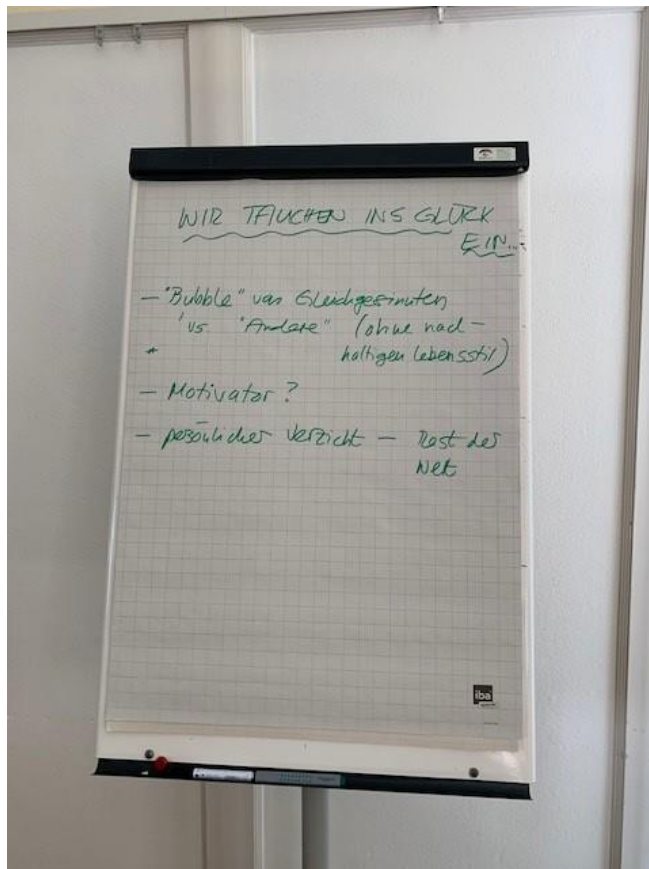 WIR TAUCHEN INS GLÜCK
EIN...
– "Bubble" von Gleichgesinnten
vs. "Andere" (ohne nach-
haltigen Lebensstil)
– Motivator?
– persönlicher Verzicht – Rest der
Welt
iba